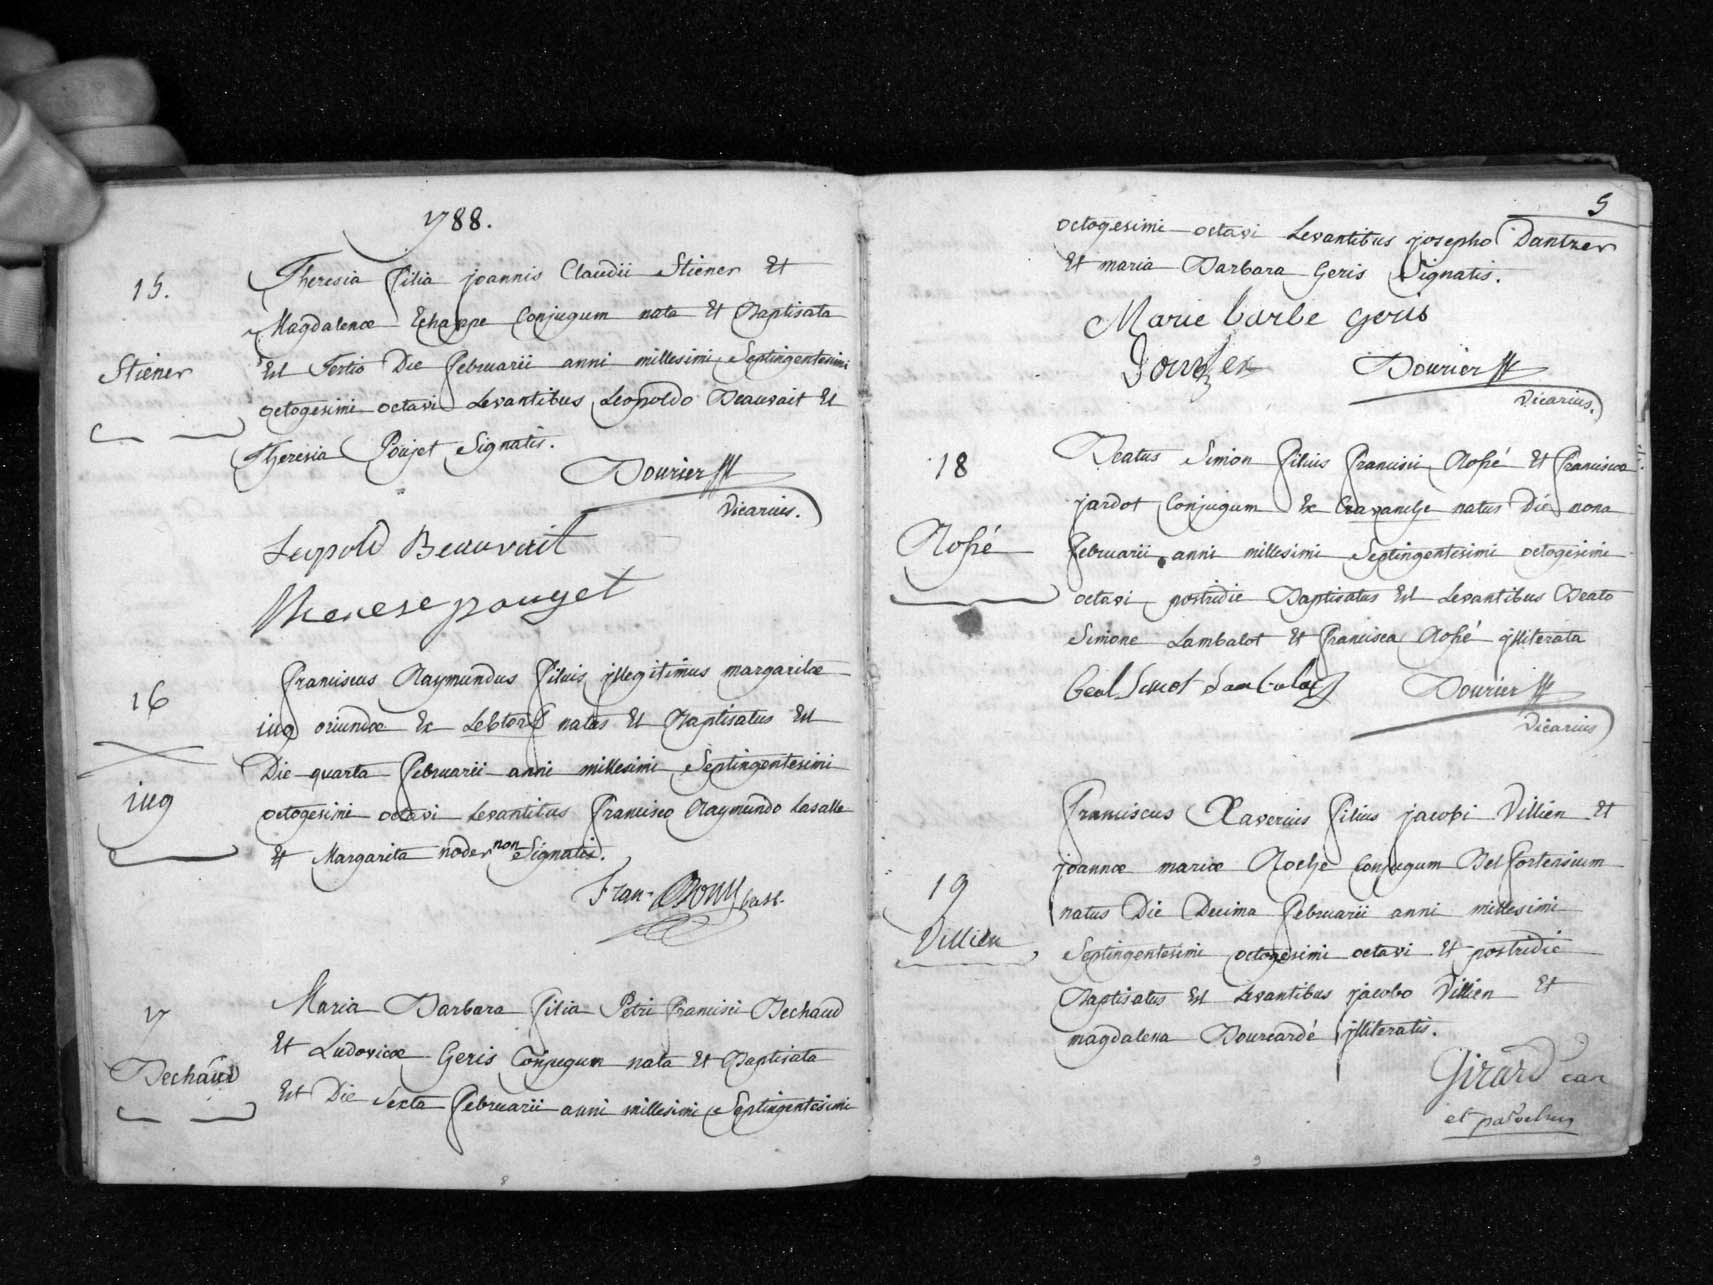 1788.
15.
Stiener
Theresia filia joannis Claudii Stiener Et
Magdalenæ Echappe Conjugum nata Et Baptisata
Est Tertio Die februarii anni millesimi Septingentesimi
octogesimi octavi Levantibus Leopoldo Beauvait Et
Theresia Poujet Signatis.
Dourier
Vicarius.
Leopold Beauvait
Therese pouget
16
iug
franciscus Raymundus filius illegitimus margaritæ
iug oriundæ Ex natus Et Baptisatus Est
Die quarta februarii anni millesimi Septingentesimi
octogesimi octavi Levantibus francisco Raymundo Lasalle
Et Margarita noder non Signatis.
fran.
17
Bechaud
Maria Barbara filia Petri francisci Bechaud
Et Ludovicæ Geris Conjugum nata Et Baptisata
Est Die Sexta februarii anni millesimi Septingentesimi
5
octogesimi octavi Levantibus josepho Dantzer
Et maria Barbara Geris Signatis.
Marie barbe geris
Dourier
Vicarius.
18
Rossé
Beatus Simon filius francisci Rossé Et franciscæ
jardot Conjugum Ex Cravanche natus Die nona
februarii anni millesimi Septingentesimi octogesimi
octavi postridie Baptisatus Est Levantibus Beato
Simone Lambalot Et francisca Rossé illiterata
Dourier
Vicarius
19
Villien
franciscus Xaverius filius jacobi Villien Et
joannæ mariæ Roche Conjugum Belfortensium
natus Die Decima februarii anni millesimi
Septingentesimi octogesimi octavi Et postridie
Baptisatus Est Levantibus jacobo Villien Et
magdalena Bourcardé illiteratis.
Girard can
et parochus
8
9